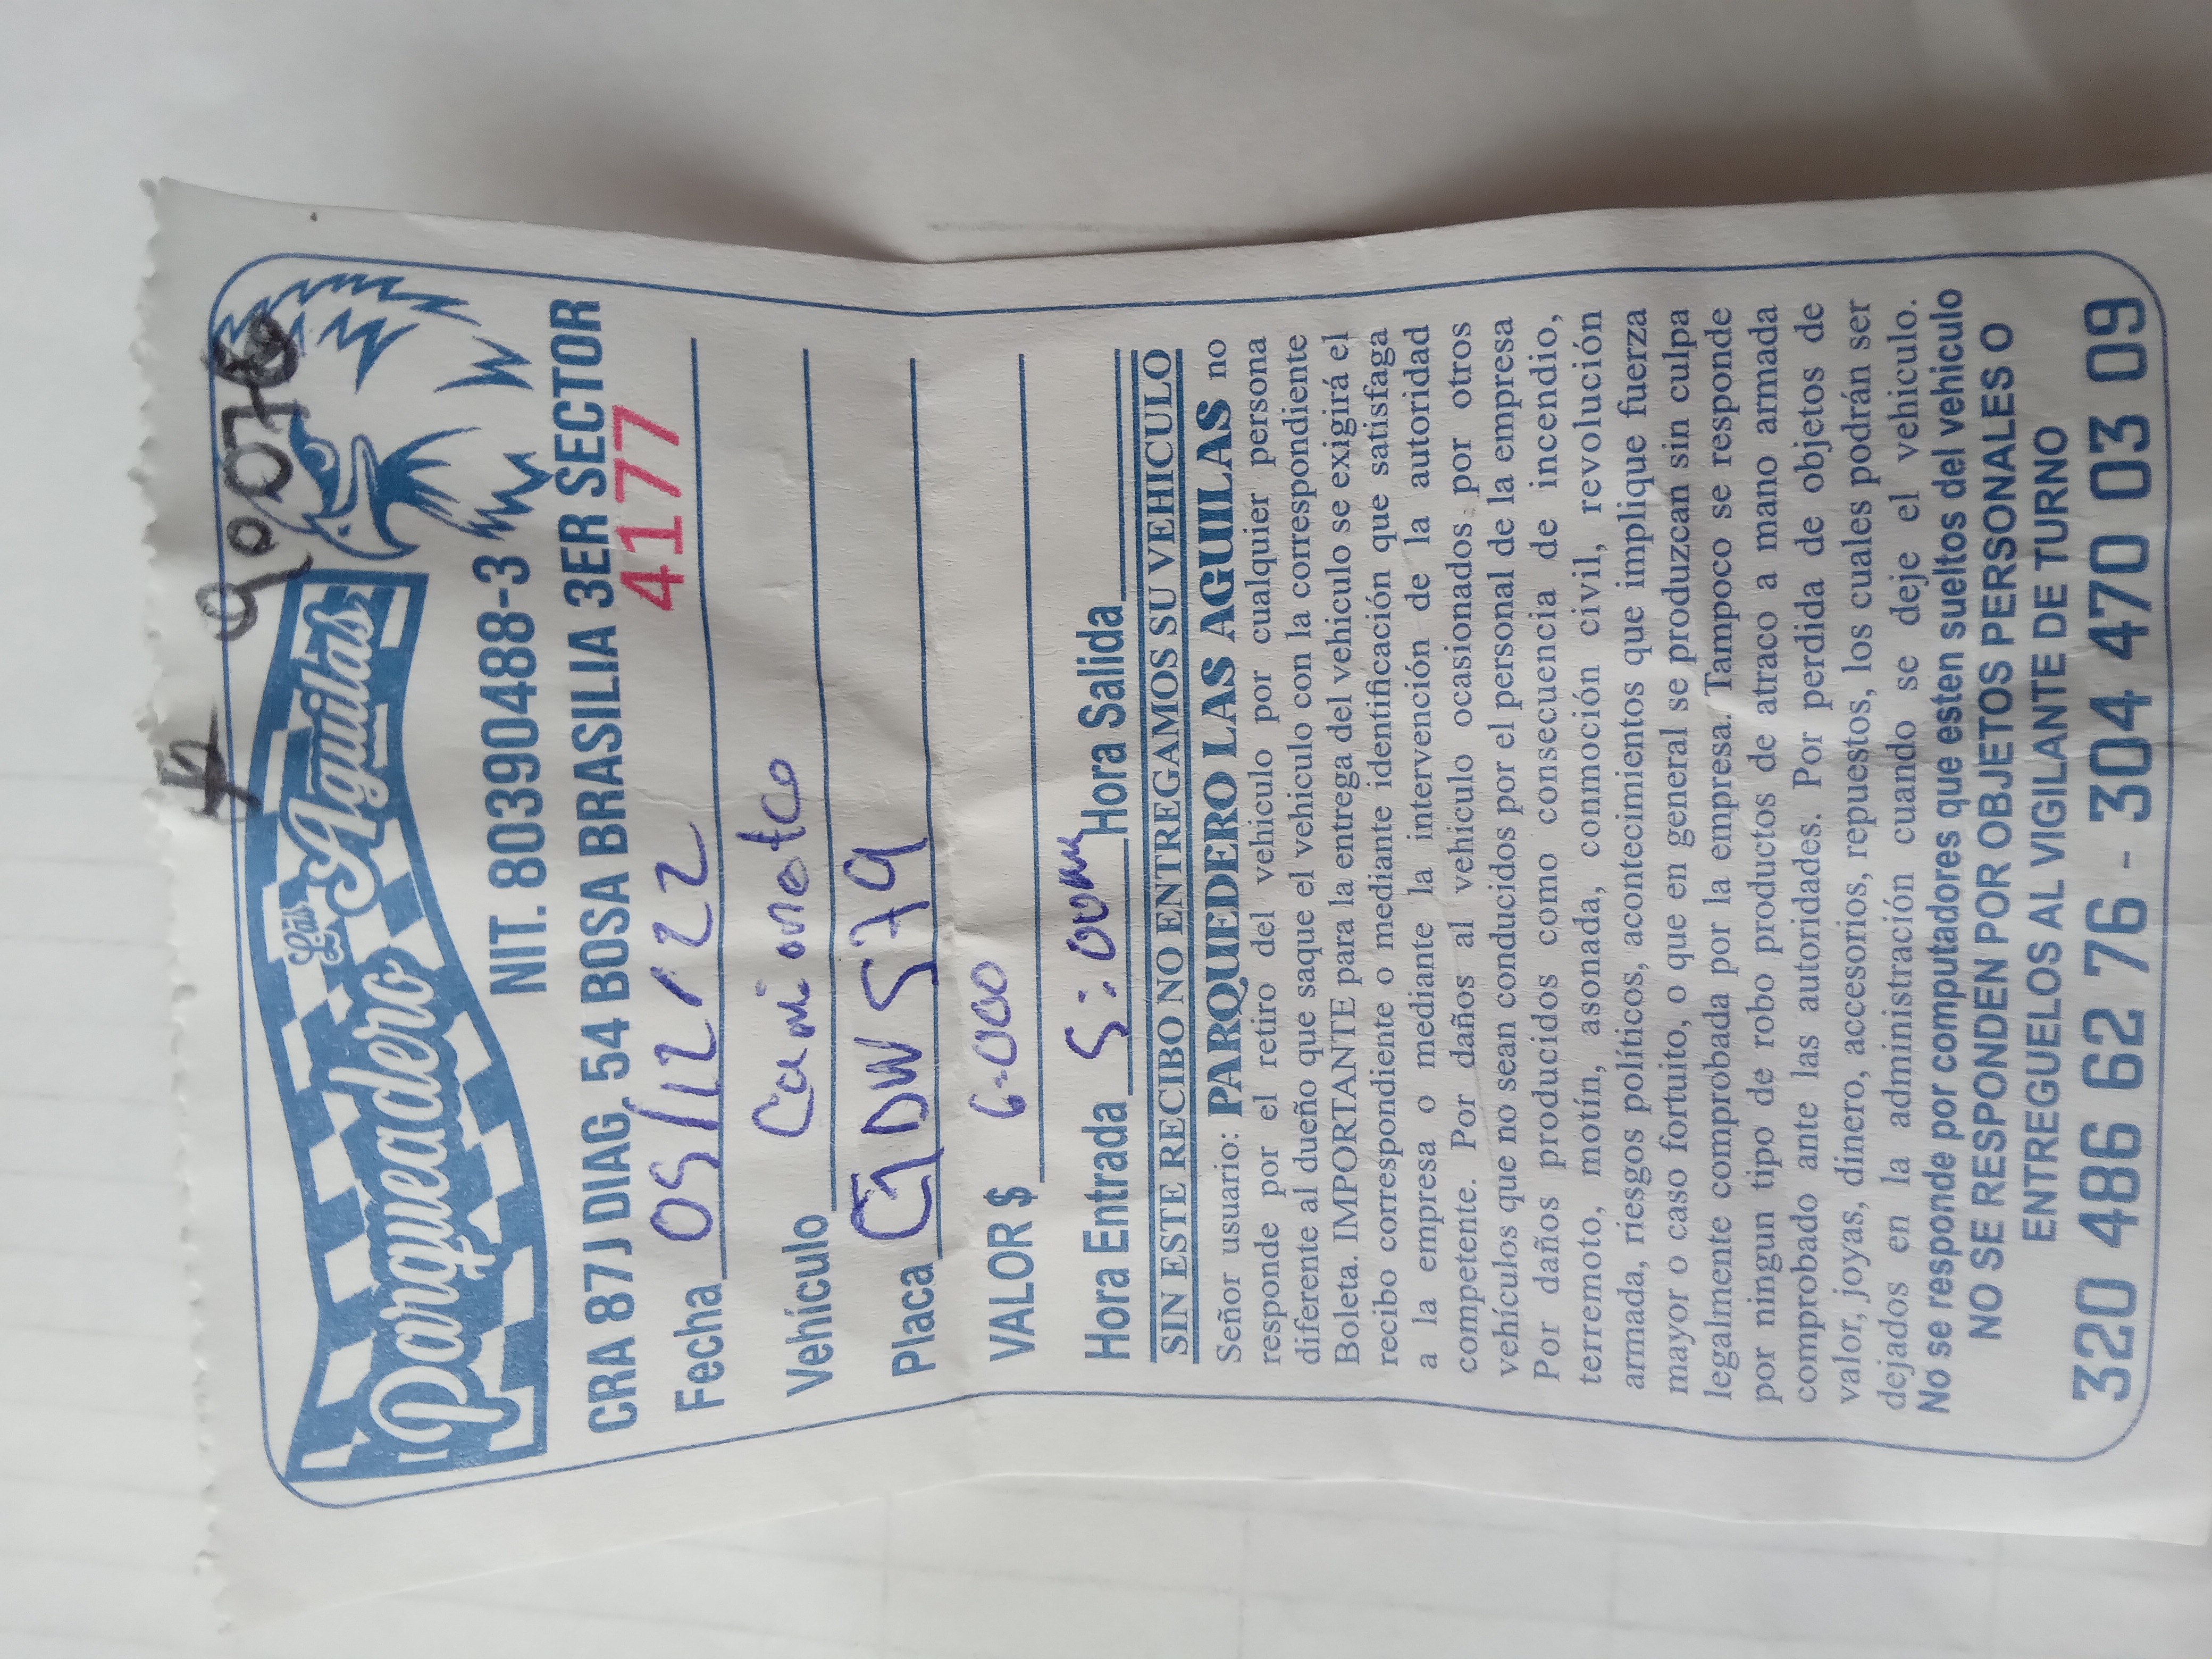 Parqueadero Las Aguilas
NIT. 80390488-3
CRA 87J DIAG. 54 BOSA BRASILIA 3ER SECTOR
4177
Fecha 05/12/22
Vehículo Camioneta
Placa GDW 579
VALOR $ 6.000
Hora Entrada 5:00 Hora Salida
SIN ESTE RECIBO NO ENTREGAMOS SU VEHICULO
Señor usuario: PARQUEDERO LAS AGUILAS no
responde por el retiro del vehiculo por cualquier persona
diferente al dueño que saque el vehiculo con la correspondiente
Boleta. IMPORTANTE para la entrega del vehiculo se exigirá el
recibo correspondiente o mediante identificación que satisfaga
a la empresa o mediante la intervención de la autoridad
competente. Por daños al vehiculo ocasionados por otros
vehículos que no sean conducidos por el personal de la empresa
Por daños producidos como consecuencia de incendio,
terremoto, motín, asonada, conmoción civil, revolución
armada, riesgos políticos, acontecimientos que implique fuerza
mayor o caso fortuito, o que en general se produzcan sin culpa
legalmente comprobada por la empresa. Tampoco se responde
por ningun tipo de robo productos de atraco a mano armada
comprobado ante las autoridades. Por perdida de objetos de
valor, joyas, dinero, accesorios, repuestos, los cuales podrán ser
dejados en la administración cuando se deje el vehiculo.
No se responde por computadores que esten sueltos del vehiculo
NO SE RESPONDEN POR OBJETOS PERSONALES O
ENTREGUELOS AL VIGILANTE DE TURNO
320 486 62 76 - 304 470 03 09